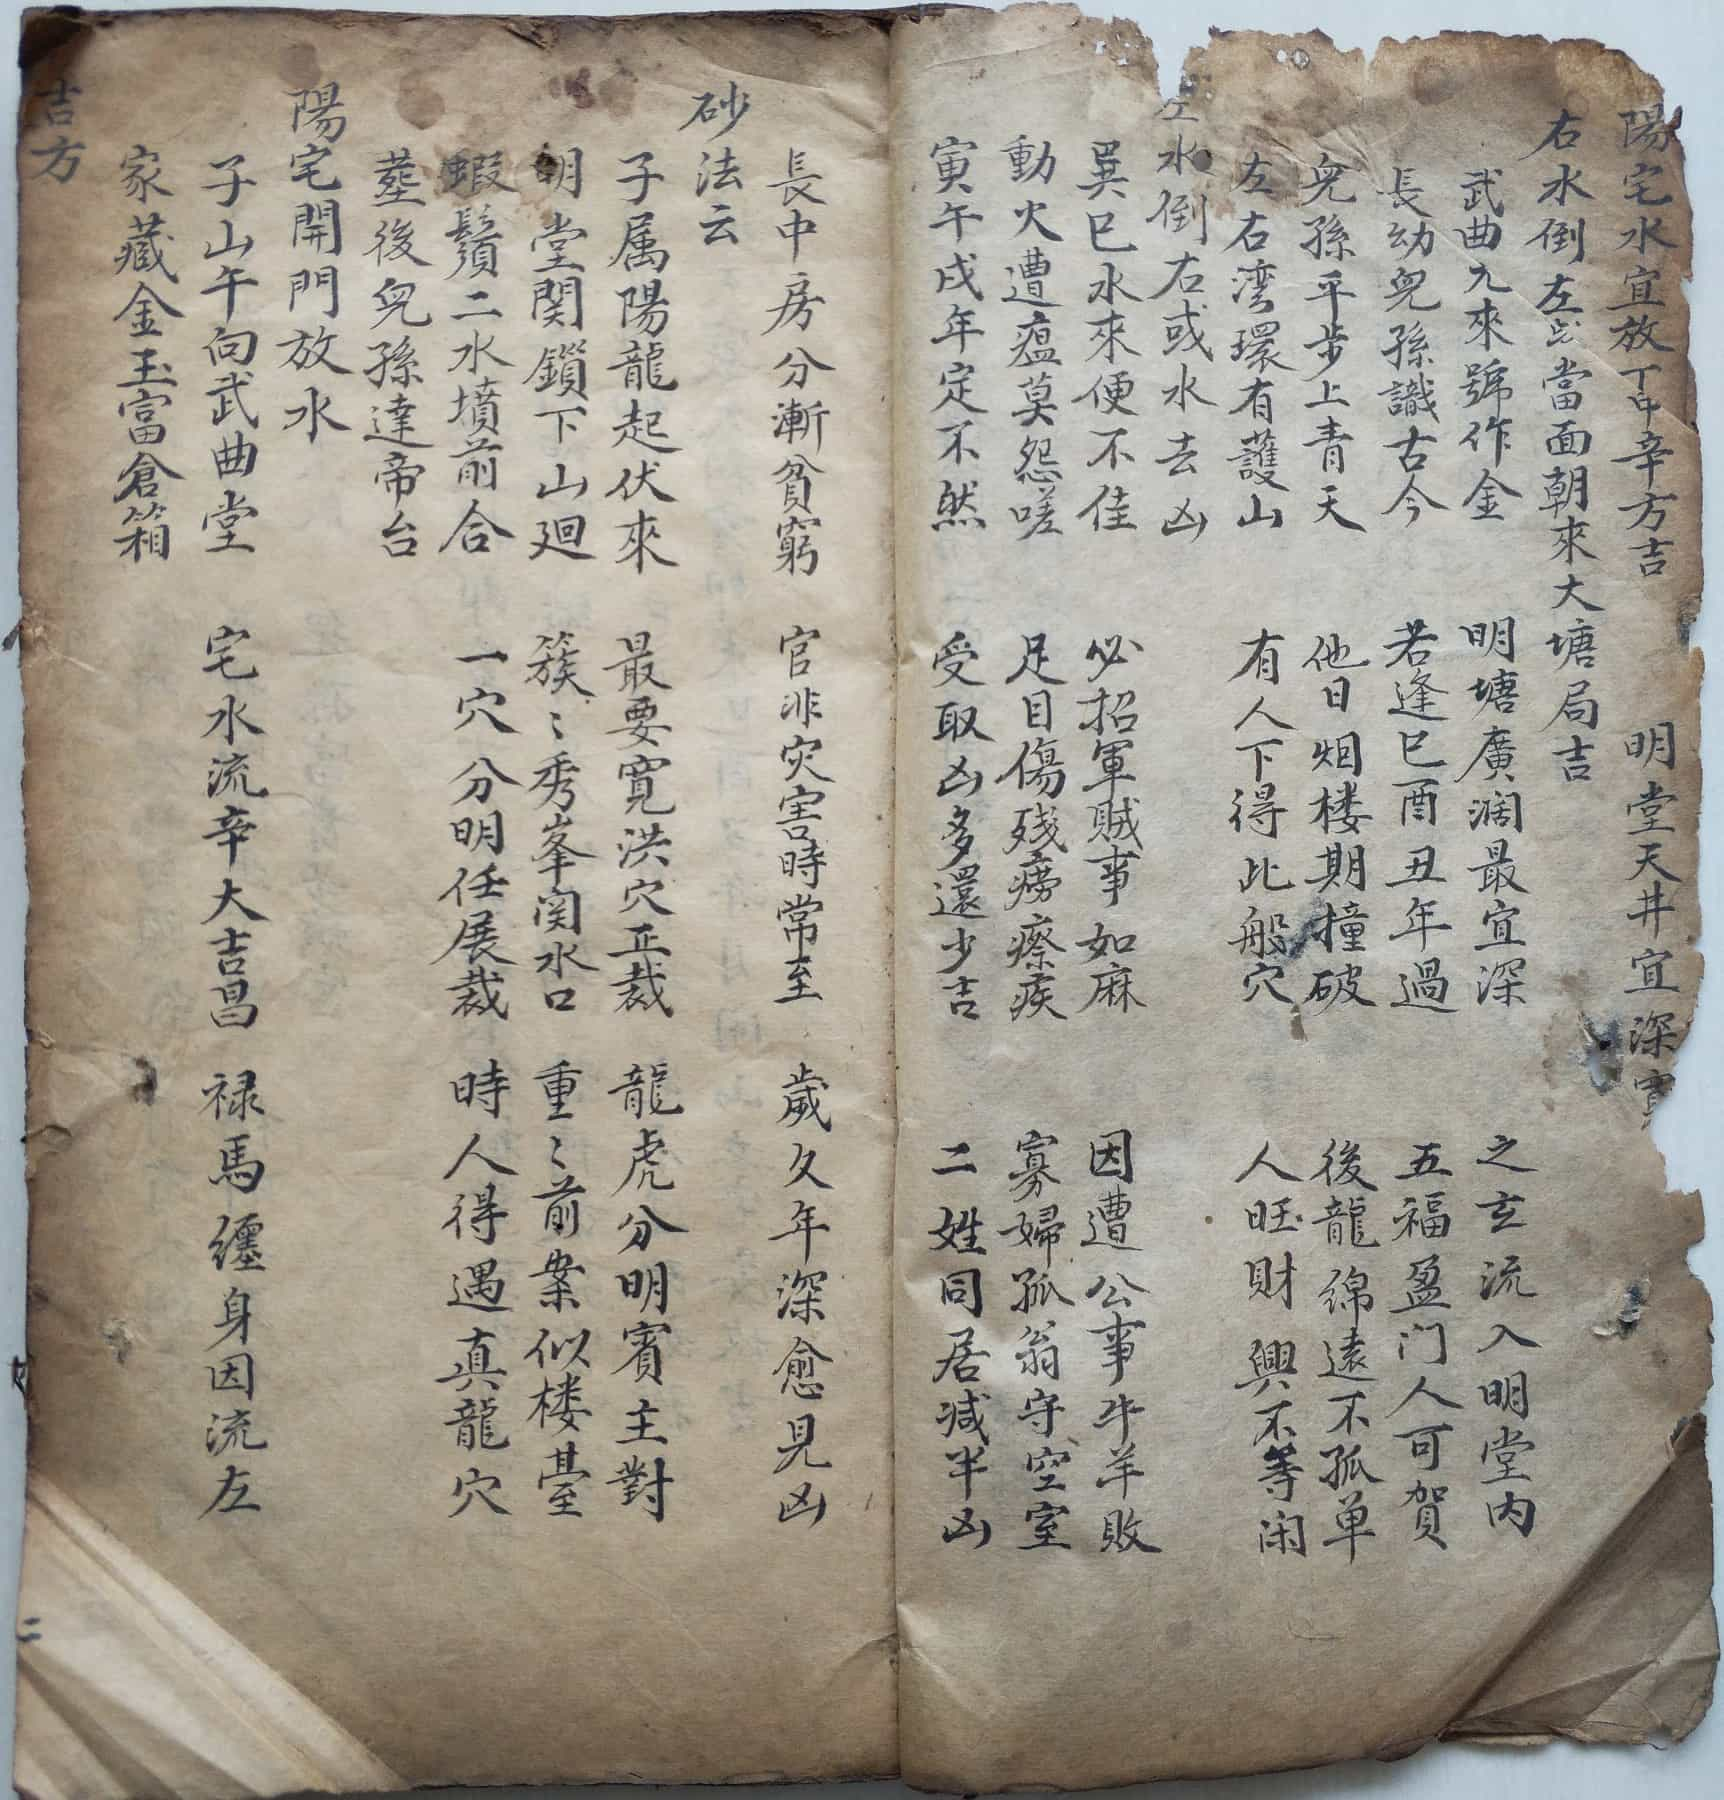 陽宅水宜放丁申辛方吉 明堂天井宜深
右水倒左 當面朝來大塘局吉
武曲九來號作金 明塘廣濶最宜深 之玄流入明堂內
長幼兒孫識古今 若逢巳酉丑年過 五福盈门人可賀
兒孫平步上青天 他日烟楼期撞破 後龍綿遠不孤单
左右湾環有護山 有人下得此般穴 人旺財興不等闲
左水倒右或水去凶
巽巳水來便不佳 必招軍賊事如麻 因遭公事牛羊敗
動火遭瘟莫怨嗟 足目傷殘癆瘵疾 寡婦孤翁守空室
寅午戌年定不然 受取凶多還少吉 二姓同居减半凶
長中房分漸貧窮 官非灾害時常至 歲久年深愈見凶
砂法云
子属陽龍起伏來 最要寬洪穴正裁 龍虎分明賓主對
明堂関鎖下山廻 簇〻秀峯関水口 重〻前案似楼臺
蝦鬚二水墳前合 一穴分明任展裁 時人得遇真龍穴
塟後兒孫達帝台
陽宅開門放水
子山午向武曲堂 宅水流辛大吉昌 禄馬纏身因流左
家藏金玉富倉箱
吉方
二